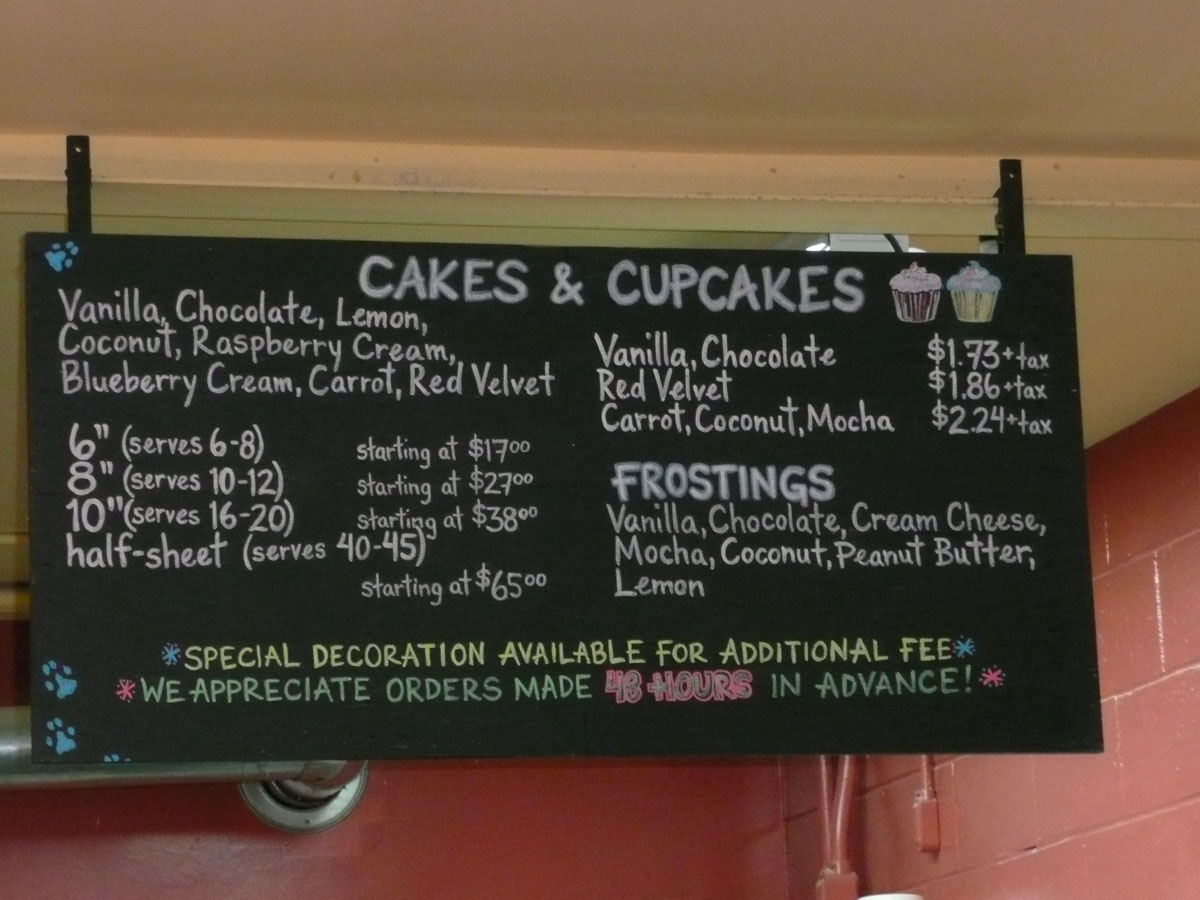 CAKES & CUPCAKES
Vanilla, Chocolate, Lemon,
Coconut, Raspberry Cream,
Blueberry Cream, Carrot, Red Velvet
6" (serves 6-8) starting at $17.00
8" (serves 10-12) starting at $27.00
10" (serves 16-20) starting at $38.00
half-sheet (serves 40-45)
starting at $65.00
Vanilla, Chocolate $1.73+tax
Red Velvet $1.86+tax
Carrot, Coconut, Mocha $2.24+tax
FROSTINGS
Vanilla, Chocolate, Cream Cheese,
Mocha, Coconut, Peanut Butter,
Lemon
*SPECIAL DECORATION AVAILABLE FOR ADDITIONAL FEE*
*WE APPRECIATE ORDERS MADE 48 HOURS IN ADVANCE!*